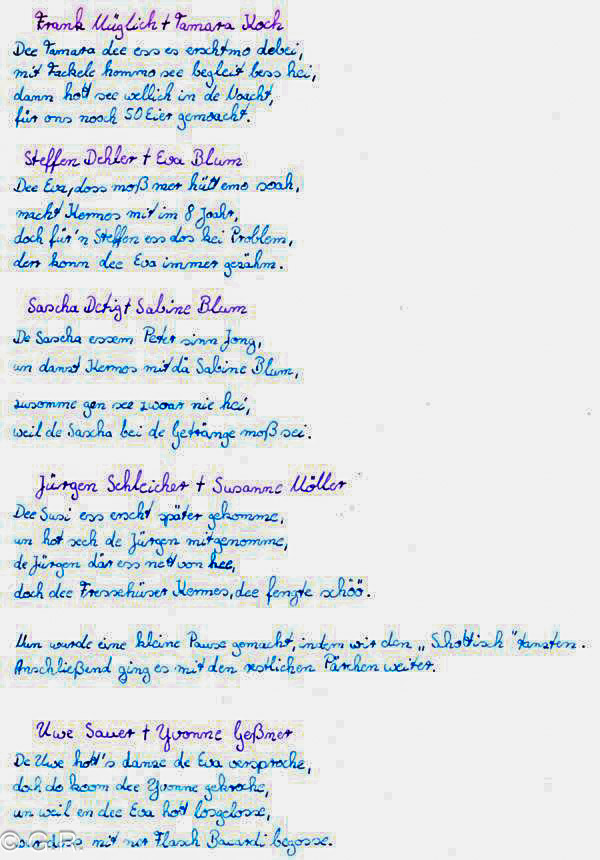 Frank Müglich + Tamara Koch
Dee Tamara dee ess es erschtmo debei,
mit Fackele hommo see begleit bess hei,
dann hott see wellich in de Noacht,
für ons noch 50 Eier gemoacht.
Steffen Dehler + Eva Blum
Dee Eva, doss moß mer hütt emo soah,
macht Kermes mit im 8 Joahr,
doch für'n Steffen ess dos kei Problem,
derr konn dee Eva immer gezähm.
Sascha Detig + Sabine Blum
De Sascha essem Peter sinn Jong,
un danzt Kermes mit dä Sabine Blum,
zusomme gen see zwoar nie hei,
weil de Sascha bei de Getränge moß sei.
Jürgen Schleicher + Susanne Möller
Dee Susi ess erscht später gekomme,
un hot sech de Jürgen mitgenomme,
de Jürgen där ess nett von hee,
doch dee Fressehüser Kermes, dee fengte schöö.
Nun wurde eine kleine Pause gemacht, indem wir den „Schottisch" tanzten.
Anschließend ging es mit den restlichen Pärchen weiter.
Uwe Sauer + Yvonne Geßner
De Uwe hott's danze de Eva versproche,
doch do koom dee Yvonne gekroche,
un weil en dee Eva hott losgelosse,
wur dass mit ner Flasch Bacardi begosse.
© G.R.